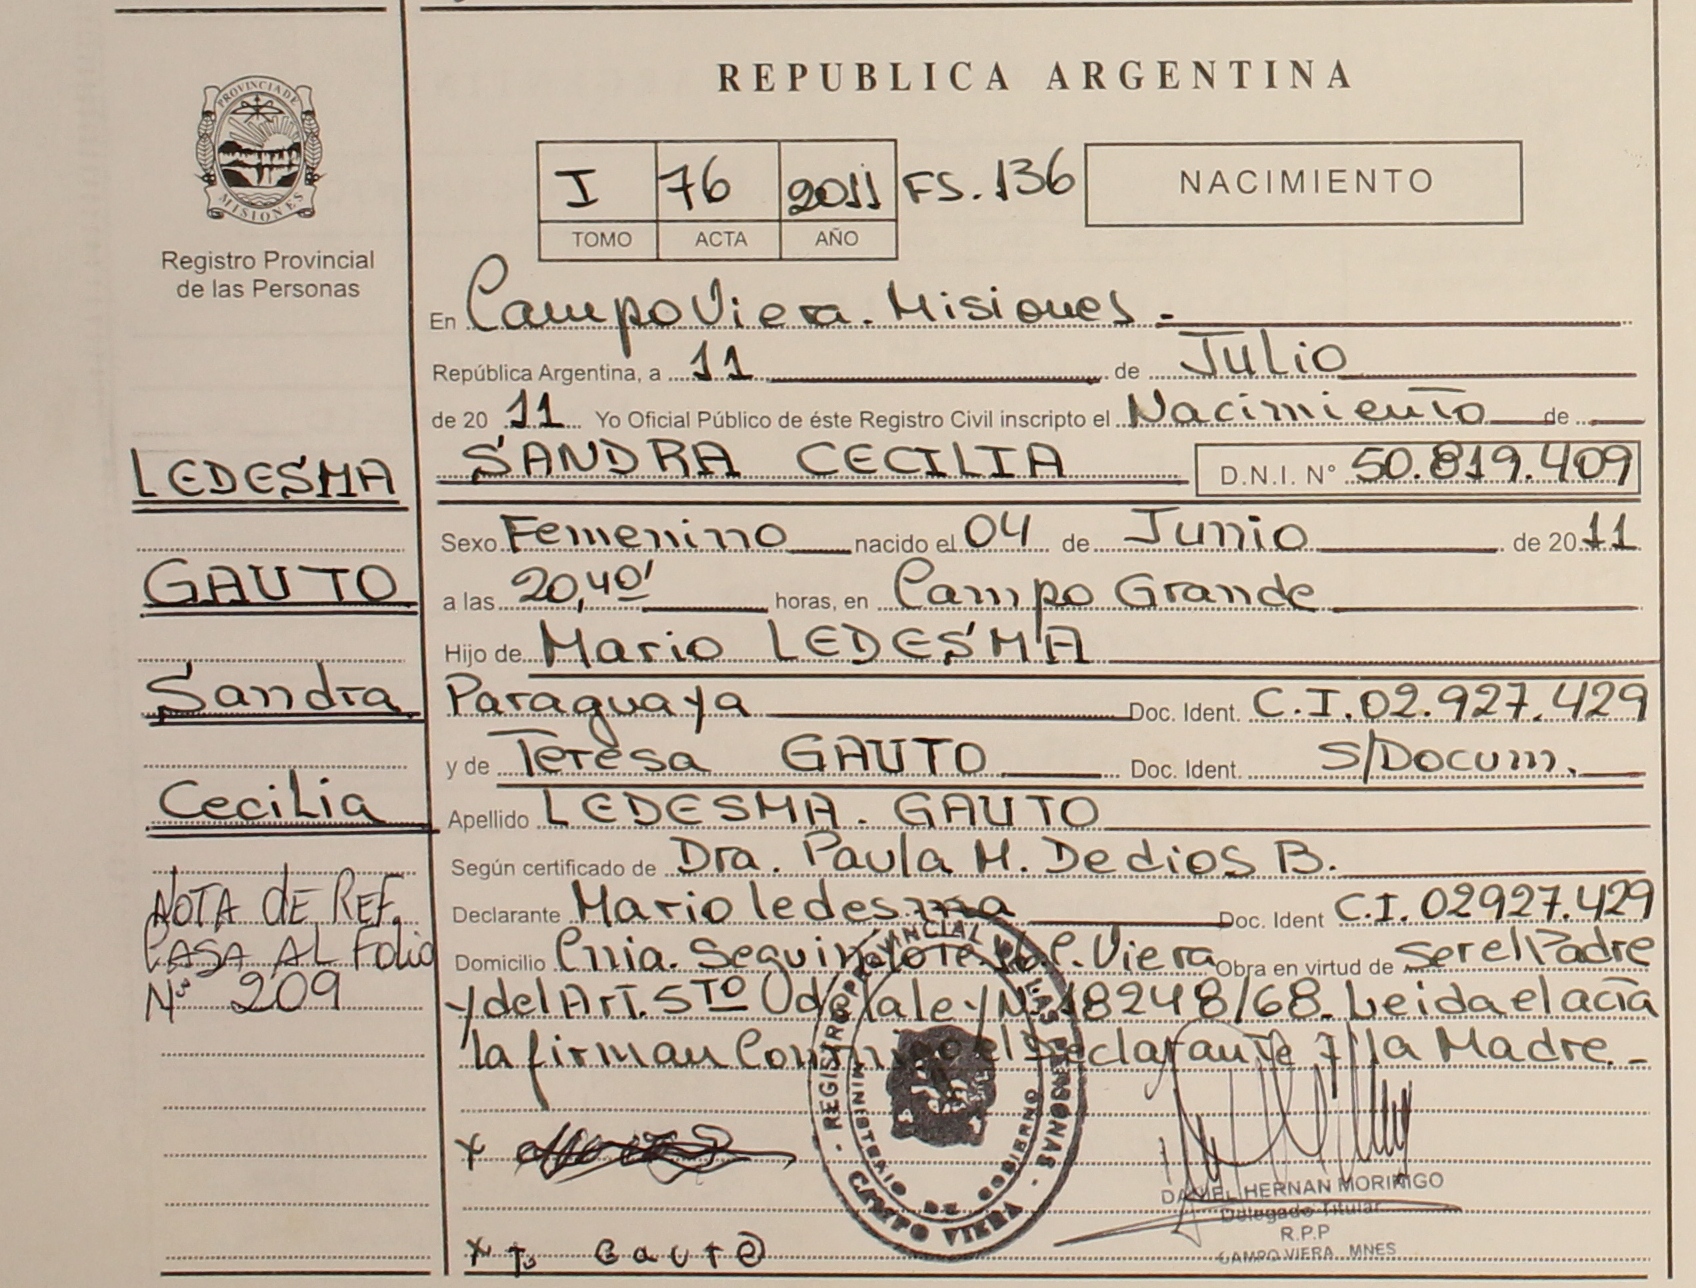 REPUBLICA ARGENTINA
PROVINCIA DE
MISIONES
Registro Provincial
de las Personas
I 76 2011 FS. 136
TOMO ACTA AÑO
NACIMIENTO
En Campo Viera. Misiones.-
República Argentina, a 11 de Julio
de 20 11 Yo Oficial Público de éste Registro Civil inscripto el Nacimiento de
SANDRA CECILIA D.N.I. N° 50.819.409
Sexo Femenino nacido el 04 de Junio de 20 11
a las 20,40' horas, en Campo Grande
Hijo de Mario LEDESMA
Paraguaya Doc. Ident. C.I. 02.927.429
y de Teresa GAUTO Doc. Ident. S/Docum.
Apellido LEDESMA. GAUTO
Según certificado de Dra. Paula M. Dedios B.
Declarante Mario ledesma Doc. Ident C.I. 02927.429
Domicilio Cnia. Seguin lote C. Viera Obra en virtud de ser el Padre
y del Art. 5TO de la ley N 18248/68. Leida el acta
la firman Conmigo el Declarante y la Madre.-
LEDESMA
GAUTO
Sandra
Cecilia
NOTA de REF.
PASA AL Folio
N° 209
REGISTRO PROVINCIAL DE LAS PERSONAS
MINISTERIO DE GOBIERNO
CAMPO VIERA
DANIEL HERNAN MORINIGO
Delegado Titular
R.P.P
CAMPO VIERA MNES
x
x T Gauto